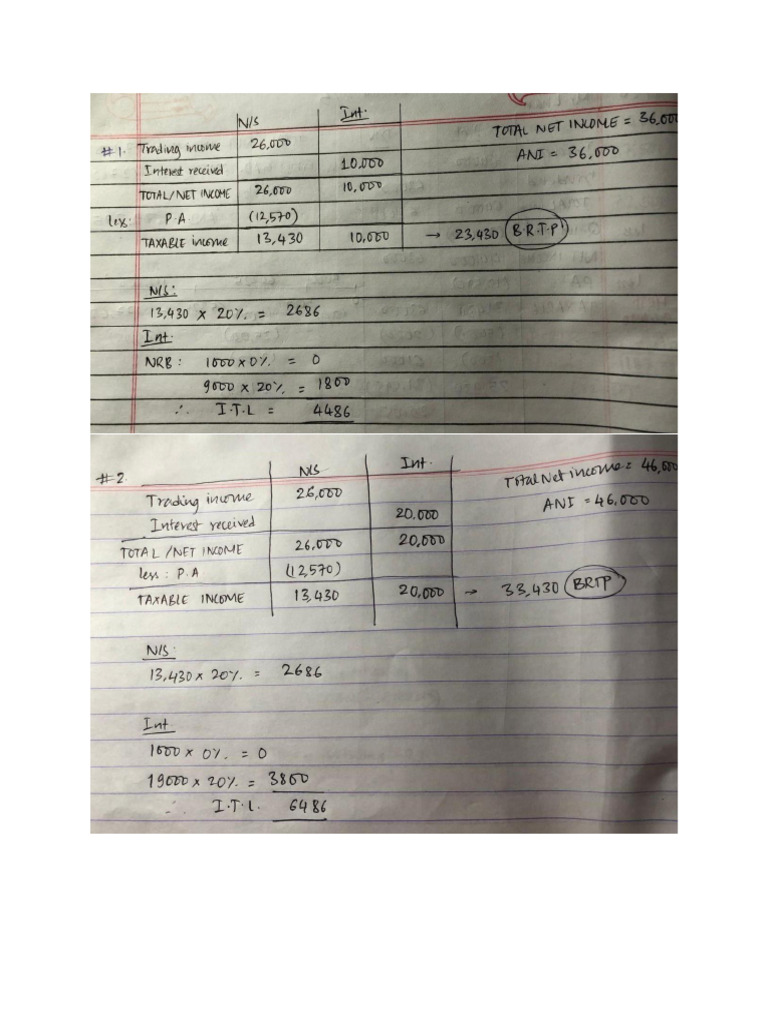 N/S Int. TOTAL NET INCOME = 36,000
#1. Trading income 26,000 ANI = 36,000
Interest received 10,000
TOTAL/NET INCOME 26,000 10,000
less: P.A. (12,570)
TAXABLE income 13,430 10,000 → 23,430 B.R.T.P'
N/S:
13,430 x 20%. = 2686
Int.
NRB: 1000x0%. = 0
9000 x 20%. = 1800
∴ I.T.L = 4486
#2. N/S Int. Total Net income = 46,000
Trading income 26,000 ANI = 46,000
Interest received 20.000
TOTAL /NET INCOME 26,000 20,000
less : P.A (12,570)
TAXABLE INCOME 13,430 20,000 → 33,430 BRTP'
N/S:
13,430x 20%. = 2686
Int
1000x 0%. = 0
19000x 20%. = 3800
∴ I.T.L. 6486